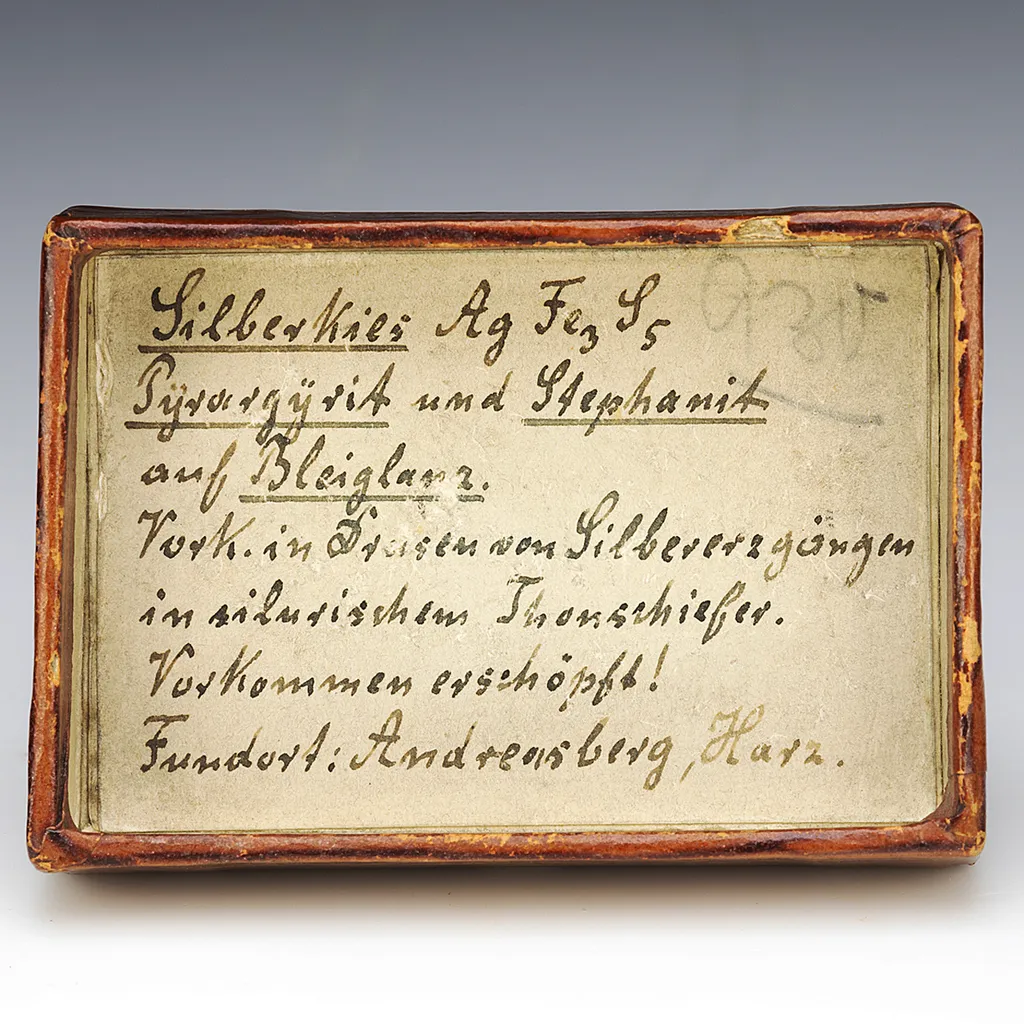 Silberkies Ag Fe₃ S₅
Pÿrargÿrit und Stephanit
auf Bleiglanz.
Vork. in Drusen von Silbererzgängen
in silurischem Thonschiefer.
Vorkommen erschöpft!
Fundort: Andreasberg, Harz.